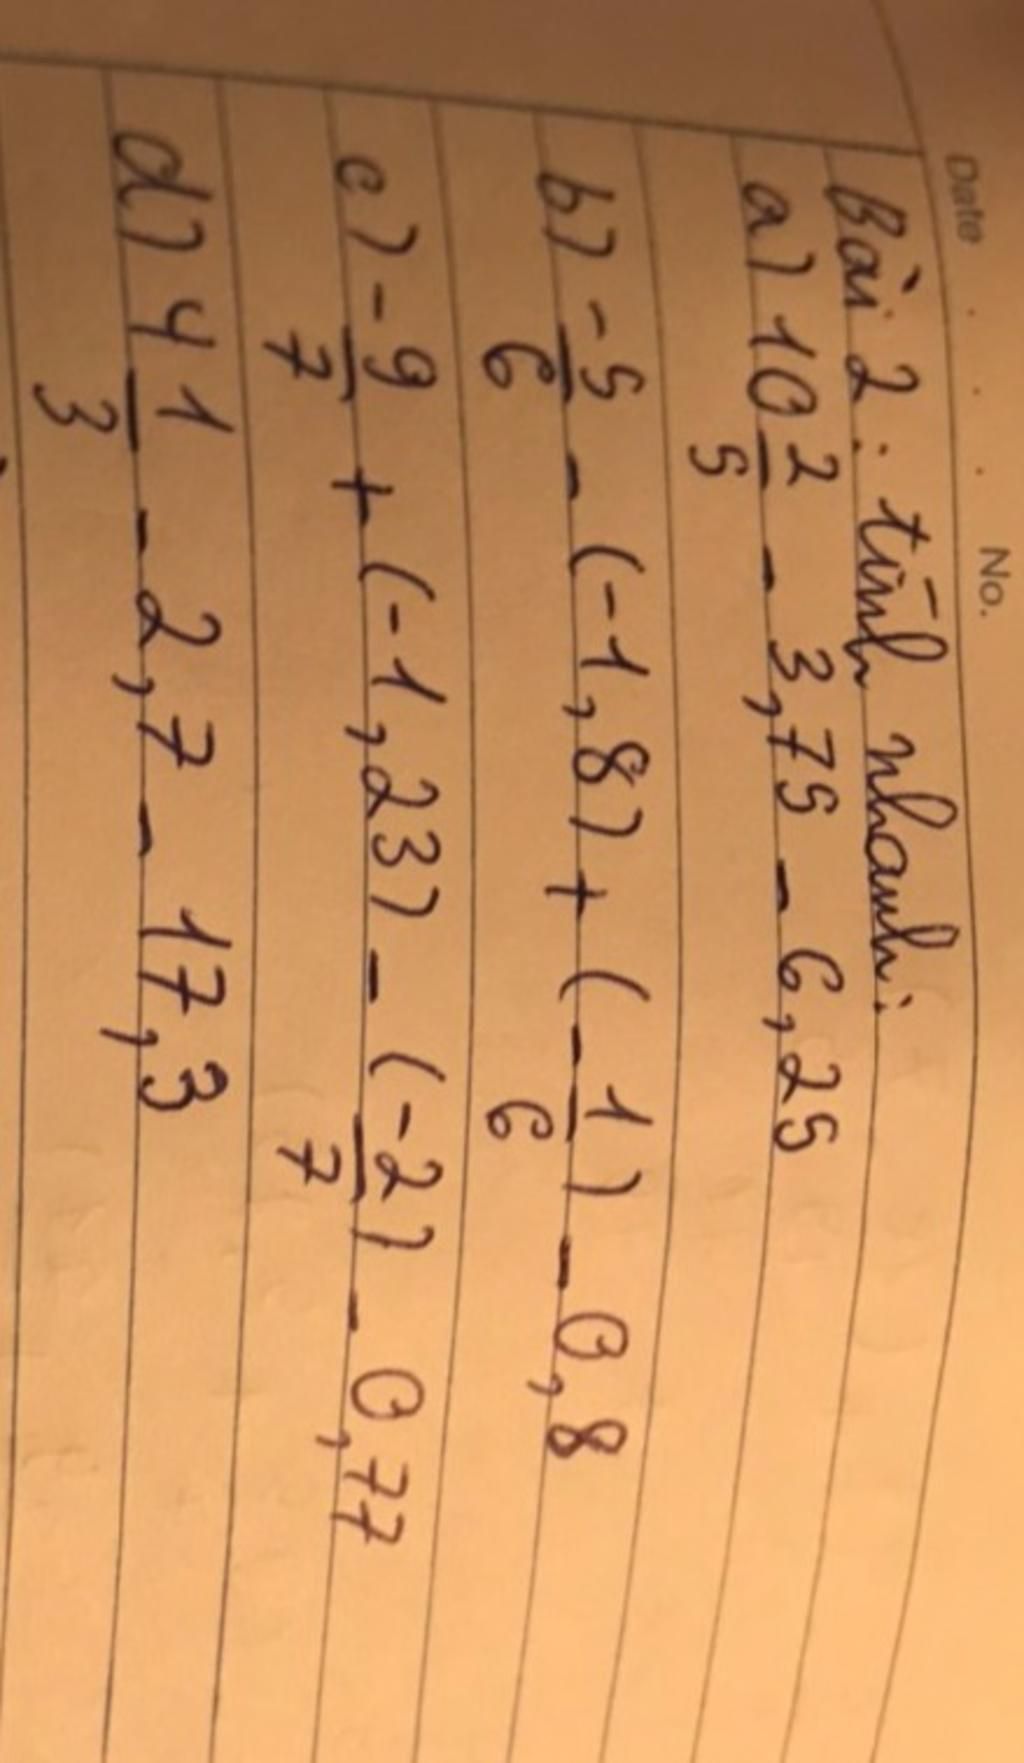 Date . . . No.
Bài 2: tính nhanh:
a) 10 2/5 - 3,75 - 6,25
b) -5/6 - (-1,8) + (-1/6) - 0,8
c) -9/7 + (-1,23) - (-2/7) - 0,77
d) 4 1/3 - 2,7 - 17,3